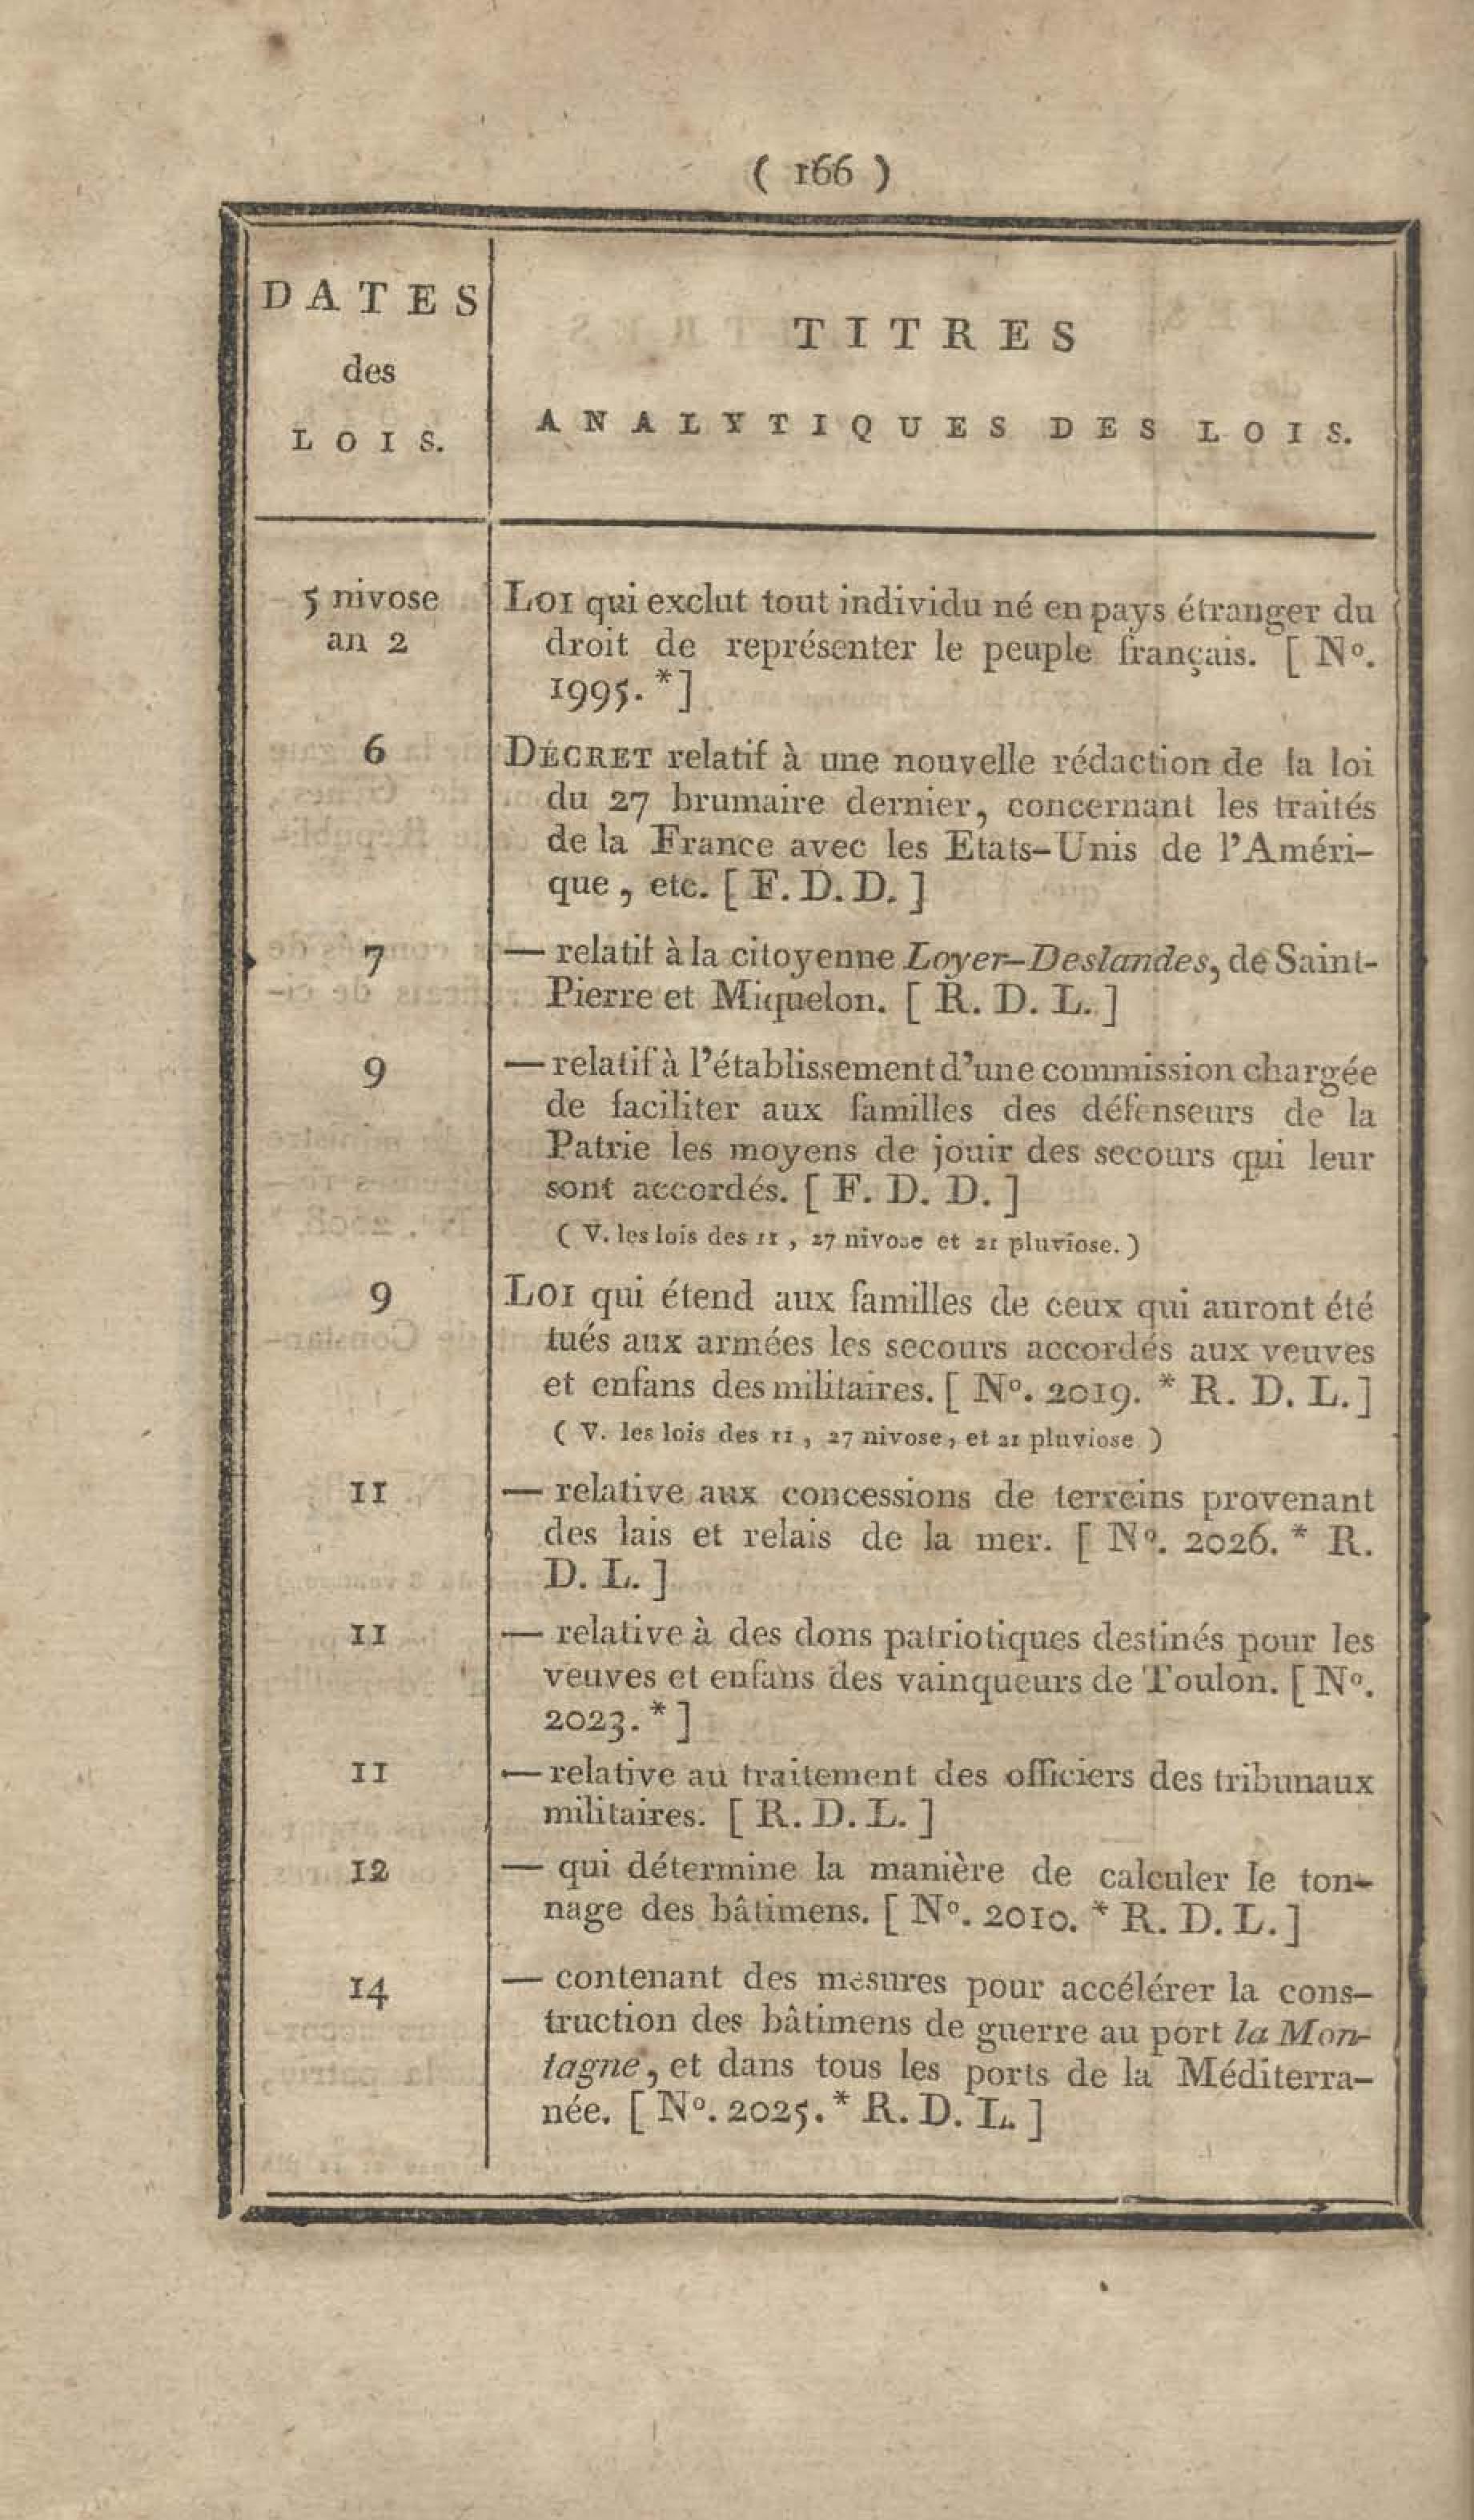 ( 166 )
DATES
des
LOIS.
TITRES
ANALYTIQUES DES LOIS.
5 nivose
an 2
LOI qui exclut tout individu né en pays étranger du
droit de représenter le peuple français. [ Nº.
1995. *]
6
DÉCRET relatif à une nouvelle rédaction de la loi
du 27 brumaire dernier, concernant les traités
de la France avec les Etats-Unis de l'Améri-
que, etc. [ F. D. D. ]
7
— relatif à la citoyenne Loyer-Deslandes, de Saint-
Pierre et Miquelon. [ R. D. L. ]
9
— relatif à l'établissement d'une commission chargée
de faciliter aux familles des défenseurs de la
Patrie les moyens de jouir des secours qui leur
sont accordés. [ F. D. D. ]
( V. les lois des 11, 27 nivose et 21 pluviose. )
9
LOI qui étend aux familles de ceux qui auront été
tués aux armées les secours accordés aux veuves
et enfans des militaires. [ Nº. 2019. * R. D. L. ]
( V. les lois des 11, 27 nivose, et 21 pluviose )
11
— relative aux concessions de terreins provenant
des lais et relais de la mer. [ Nº. 2026. * R.
D. L. ]
11
— relative à des dons patriotiques destinés pour les
veuves et enfans des vainqueurs de Toulon. [ Nº.
2023. * ]
11
— relative au traitement des officiers des tribunaux
militaires. [ R. D. L. ]
12
— qui détermine la manière de calculer le ton-
nage des bâtimens. [ Nº. 2010. * R. D. L. ]
14
— contenant des mesures pour accélérer la cons-
truction des bâtimens de guerre au port la Mon-
tagne, et dans tous les ports de la Méditerra-
née. [ Nº. 2025. * R. D. L. ]